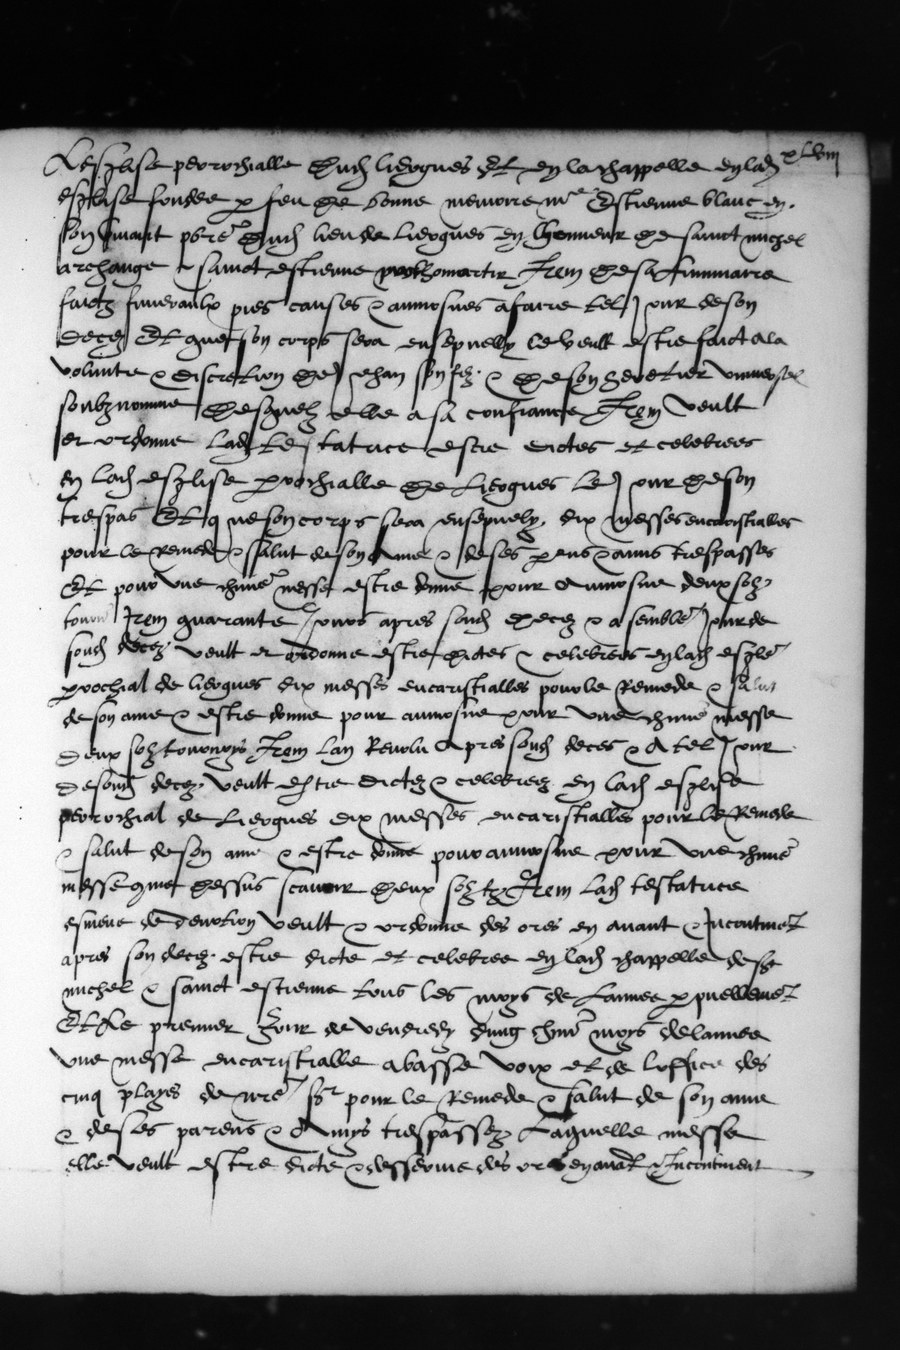 xLviii
Lesglise perrochialle dudit lieogues Et en la chappelle en lad
esglise fondee p feu de bonne memoire me Estienne blanc en
son vivant pbre dud lieu de Lieogues en Lhonneur de sainct michel
archange & sainct estienne prothomartir Item de sa funnairre
faictz funeraulx pies causes & aumosnes a faire tel Jour de son
decez Et que son corps sera ensepuelly Le veult estre faict a la
volunte & discretion de Jehan son filz & de son heretier universel
soubz nomme desquelz elle a sa confiance Item veult
et ordonne Ladte testatrice estre dictes et celebrees
en Lad esglise parrochialle de Lieogues Le Jour de son
trespas Et que son corps sera ensepuely dix messes eucaristialles
pour le Remede & salut de son ame & de ses parens & amis trespasses
Et pour une chune messe estre donne pour aumosne deux solz
tourn Item quarante Jours apres sond decez & a semble Jour de
sond decez veult et ordonne estre dictes & celebrees en lad esglse
parrochial de lieogues dix messes eucaristialles pour le Remede & salut
de son ame & estre donne pour aumosne pour une chune messe
deux solz tournoys Item Lan Revolu Apres sond deces & A tel Jour
de sond decez veult estre dictez & celebreez en lad esglise
perrochial de Lieogues dix messes eucaristialles pour Le Remede
& salut de son ame & estre donne pour aumosne pour une chune
messe que dessus scavoir deux solz tz Item Lad testatrice
esmeue de devotion veult & ordonne des ores en avant & Incontinet
apres son decez estre dicte et celebree en lad chappelle de st
michel & sainct estienne tous les moys de Lannee ppuellemet
Et Le premier Jour de vendredy dung chune moys de lannee
une messe eucaristialle a basse voix et de Loffice des
cinq playes de nre sr pour le Remede & salut de son ame
& de ses parens & Amys trespassez Laquelle messe
elle veult estre dicte & desservie des ores en avat & Incontinent